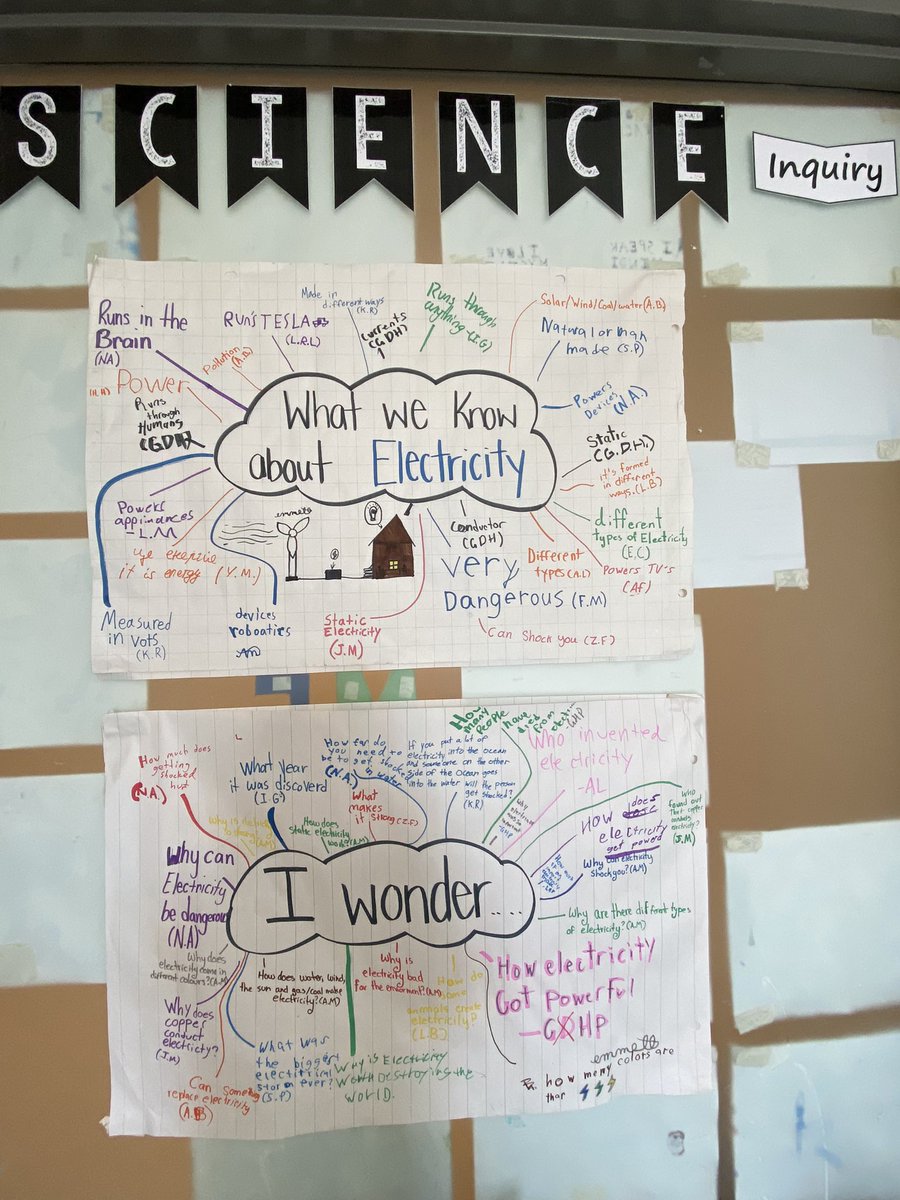 SCIENCE
Inquiry
What we Know
about Electricity
Runs in the
Brain
(NA)
Pollution
(A.B)
RUN'S TESLA
(L.R.L)
Made in
different ways
(K.R)
Currents
(GDH)
Runs through
anything (I.G)
Solar/Wind/Coal/water (A.B)
Natural or man
made (S.P)
Power
Runs
through
Humans
(GDH)
Powers
Devices (N.A.)
Static
(G.D.H.)
it's formed
in different
ways. (L.B)
different
types of Electricity
(E.C)
Powers TV's
(AF)
Different
types (A.L)
conductor
(GDH)
very
Dangerous (F.M)
Can Shock you (Z.F)
Static
Electricity
(J.M)
devices
roboatics
Measured
in vots
(K.R)
Powers
appinances
-L.M
it is energy (Y.M.)
emmett
I wonder....
How much does
getting shocked
hurt
(N.A.)
What year
it was discoverd
(I.G)
How far do
you need to
be to get shocked
in water
(N.A.)
If you put a lot of
electricity into the ocean
and some one on the other
side of the ocean goes
into the water will the person
get shocked?
(K.R)
How
many
people
have
died
from
GHP
Who invented
electricity
-AL
Who
found out
that copper
conducts
electricity?
(J.M)
What
makes
it strong (Z.F)
How does
static electricity
work? (A.M)
How does
electricity
get powerd
Why can electricity
shock you? (A.M)
Why are there different types
of electricity? (A.M)
Why can
Electricity
be dangerous
(N.A)
Why does
electricity come in
different colours? (A.M)
How does water, wind,
the sun and gas/coal make
electricity? (A.M)
Why is
electricity bad
for the enviorment? (A.M)
How do
some
animals create
electricity?
(L.B)
How electricity
Got Powerful
-GHP
Why does
copper
conduct
electricty?
(J.M)
Can
replace electricity
(A.B)
What was
the biggest
electitrical
storm ever?
(S.P)
Why is Electricity
Worth Destroying the
World.
emmett
how meny colors are
thar